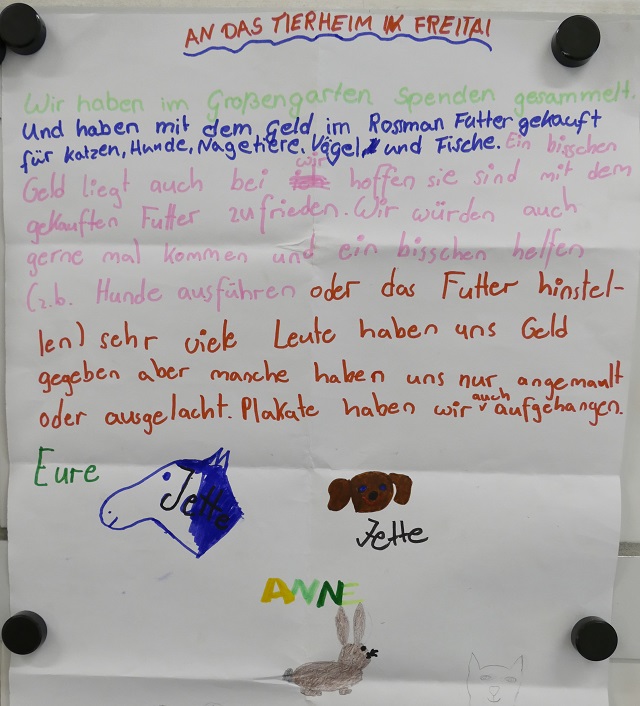 AN DAS TIERHEIM IN FREITAl
Wir haben im Großengarten Spenden gesammelt.
Und haben mit dem Geld im Rossman Futter gekauft
für Katzen, Hunde, Nagetiere, Vögel, und Fische. Ein bisschen
Geld liegt auch bei wir hoffen sie sind mit dem
gekauften Futter zufrieden. Wir würden auch
gerne mal kommen und ein bisschen helfen
(z.b. Hunde ausführen oder das Futter hinstel-
len) sehr viele Leute haben uns Geld
gegeben aber manche haben uns nur angemault
oder ausgelacht. Plakate haben wir auch aufgehangen.
Eure
Jette
Jette
ANNE